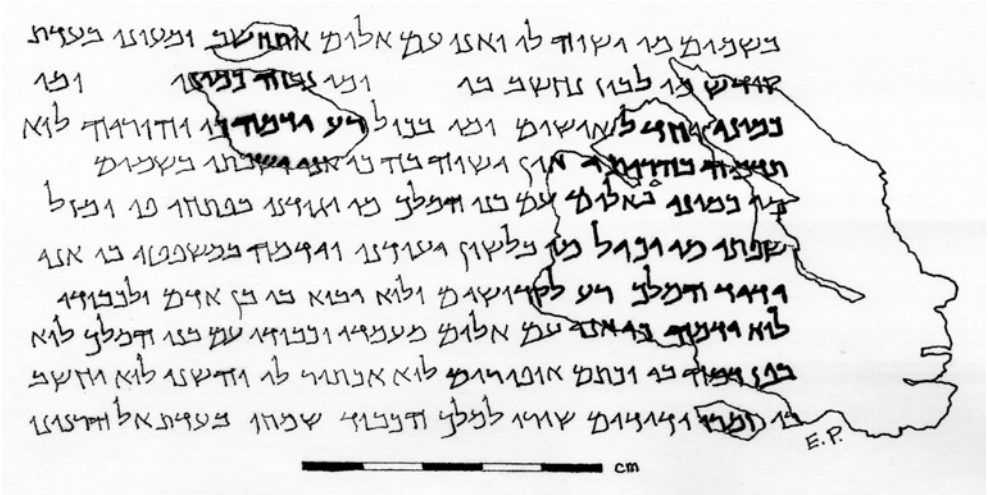 בשמים מי ישוה לי ואני עם אלים אתחשב ומעוני בעדת
קודש מי לבוז נחשב בי ומי נבזה כמוני ומי
כמוני חדל אישים ומי בכול רע ידמה בי והוריה לוא
תדמה בהוריתי אין ישוה בי כי אני ישבתי בשמים
מי כמוני באלים עם בני המלך מי יגודני בפתחי פי ומזל
שפתי מי יכיל מי בלשון יועדני וידמה במשפטי כי אני
ידיד המלך רע לקדושים ולוא יבוא בי אדם ולכבודי
לוא ידמה כי אני עם אלים מעמדי וכבודי עם בני המלך לוא
בפז ידמה בי וכתם אופירים לוא אכתיר לי לוא יחשב
בי זמרו ידידים שירו למלך הכבוד שמחו בעדת אל הרנינו
E.P.
cm